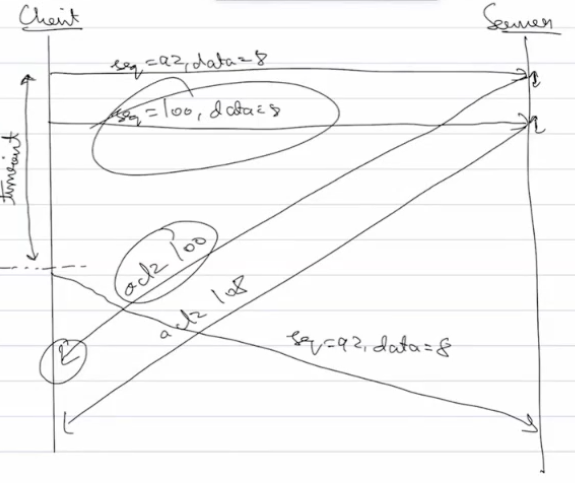 Client
Server
seq=92, data=8
seq=100, data=8
timeout
ack 100
ack 108
seq=92, data=8